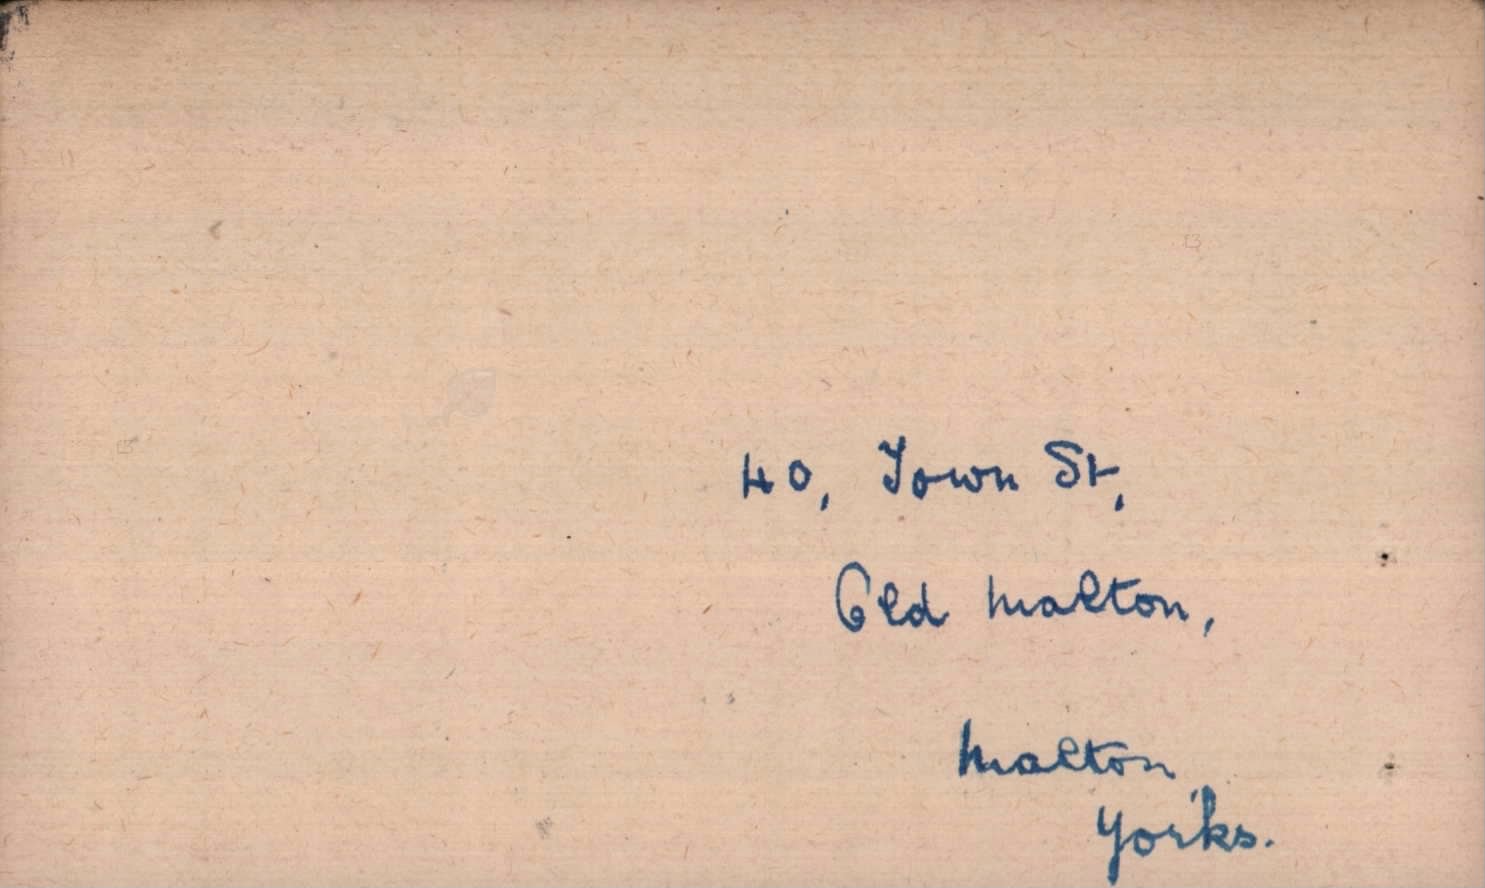 40, Town St,
Old Malton,
Malton
Yorks.